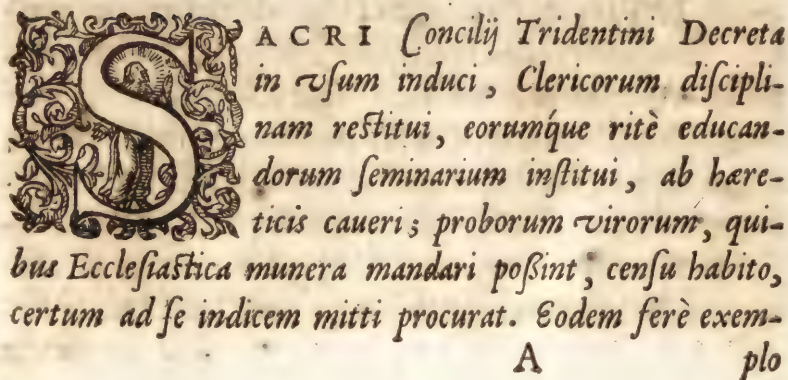 SACRI Concilij Tridentini Decreta
in vſum induci, Clericorum diſcipli-
nam reſtitui, eorumq́ue ritè educan-
dorum ſeminarium inſtitui, ab hære-
ticis caueri; proborum virorum, qui-
bus Eccleſiaſtica munera mandari poßint, cenſu habito,
certum ad ſe indicem mitti procurat. Eodem ferè exem-
A plo